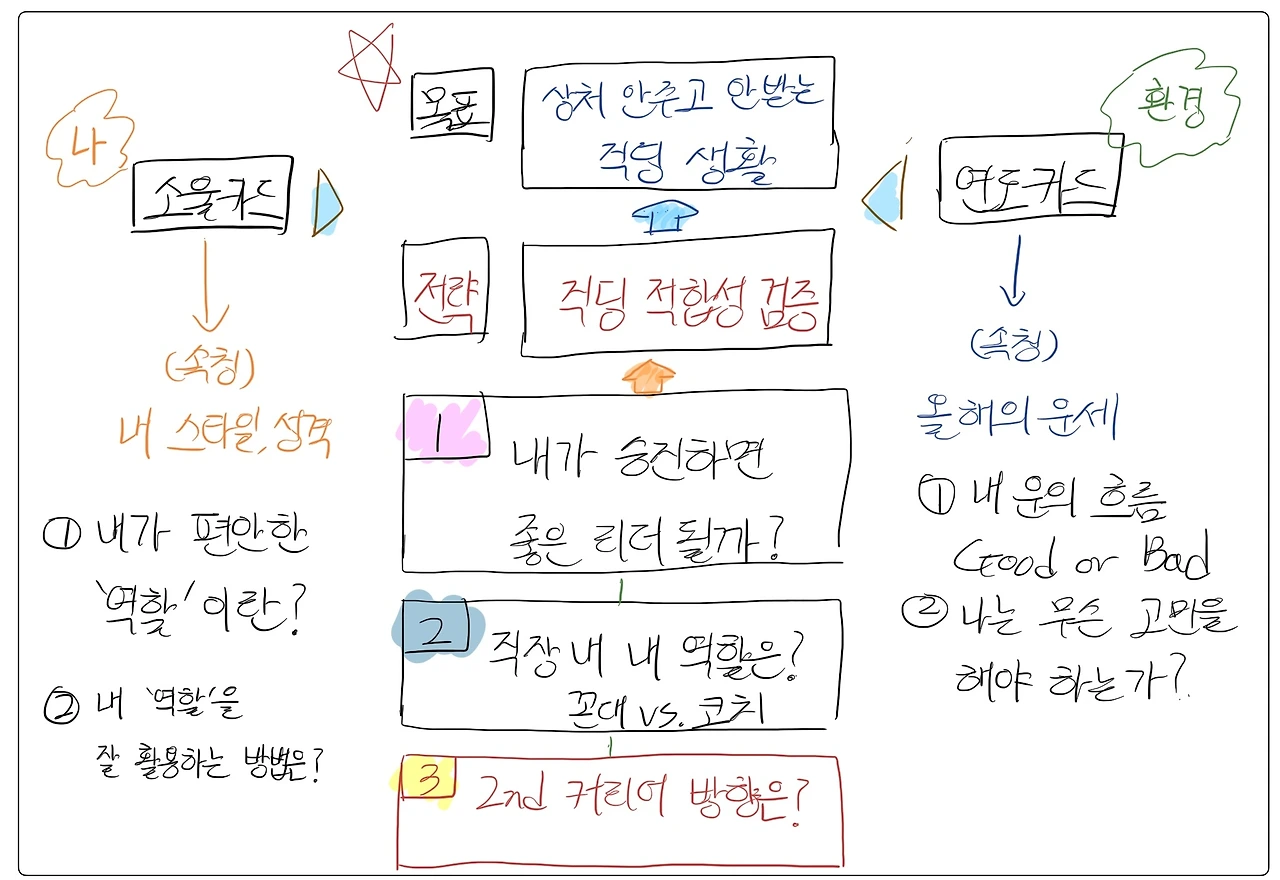 나
소울카드
(속칭)
내 스타일, 성격
① 내가 편안한
'역할'이란?
② 내 '역할'을
잘 활용하는 방법은?
목표
상처 안주고 안받는
직딩 생활
전략
직딩 적합성 검증
1
내가 승진하면
좋은 리더 될까?
2
직장 내 내 역할은?
꼰대 vs. 코치
3
2nd 커리어 방향은?
환경
연도카드
(속칭)
올해의 운세
① 내 운의 흐름
Good or Bad
② 나는 무슨 고민을
해야 하는가?